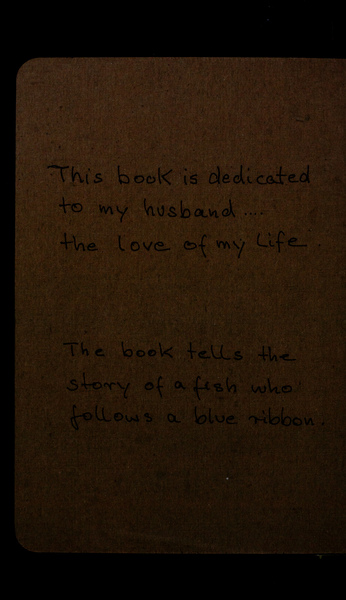 This book is dedicated
to my husband ....
the love of my Life
The book tells the
story of a fish who
follows a blue ribbon.